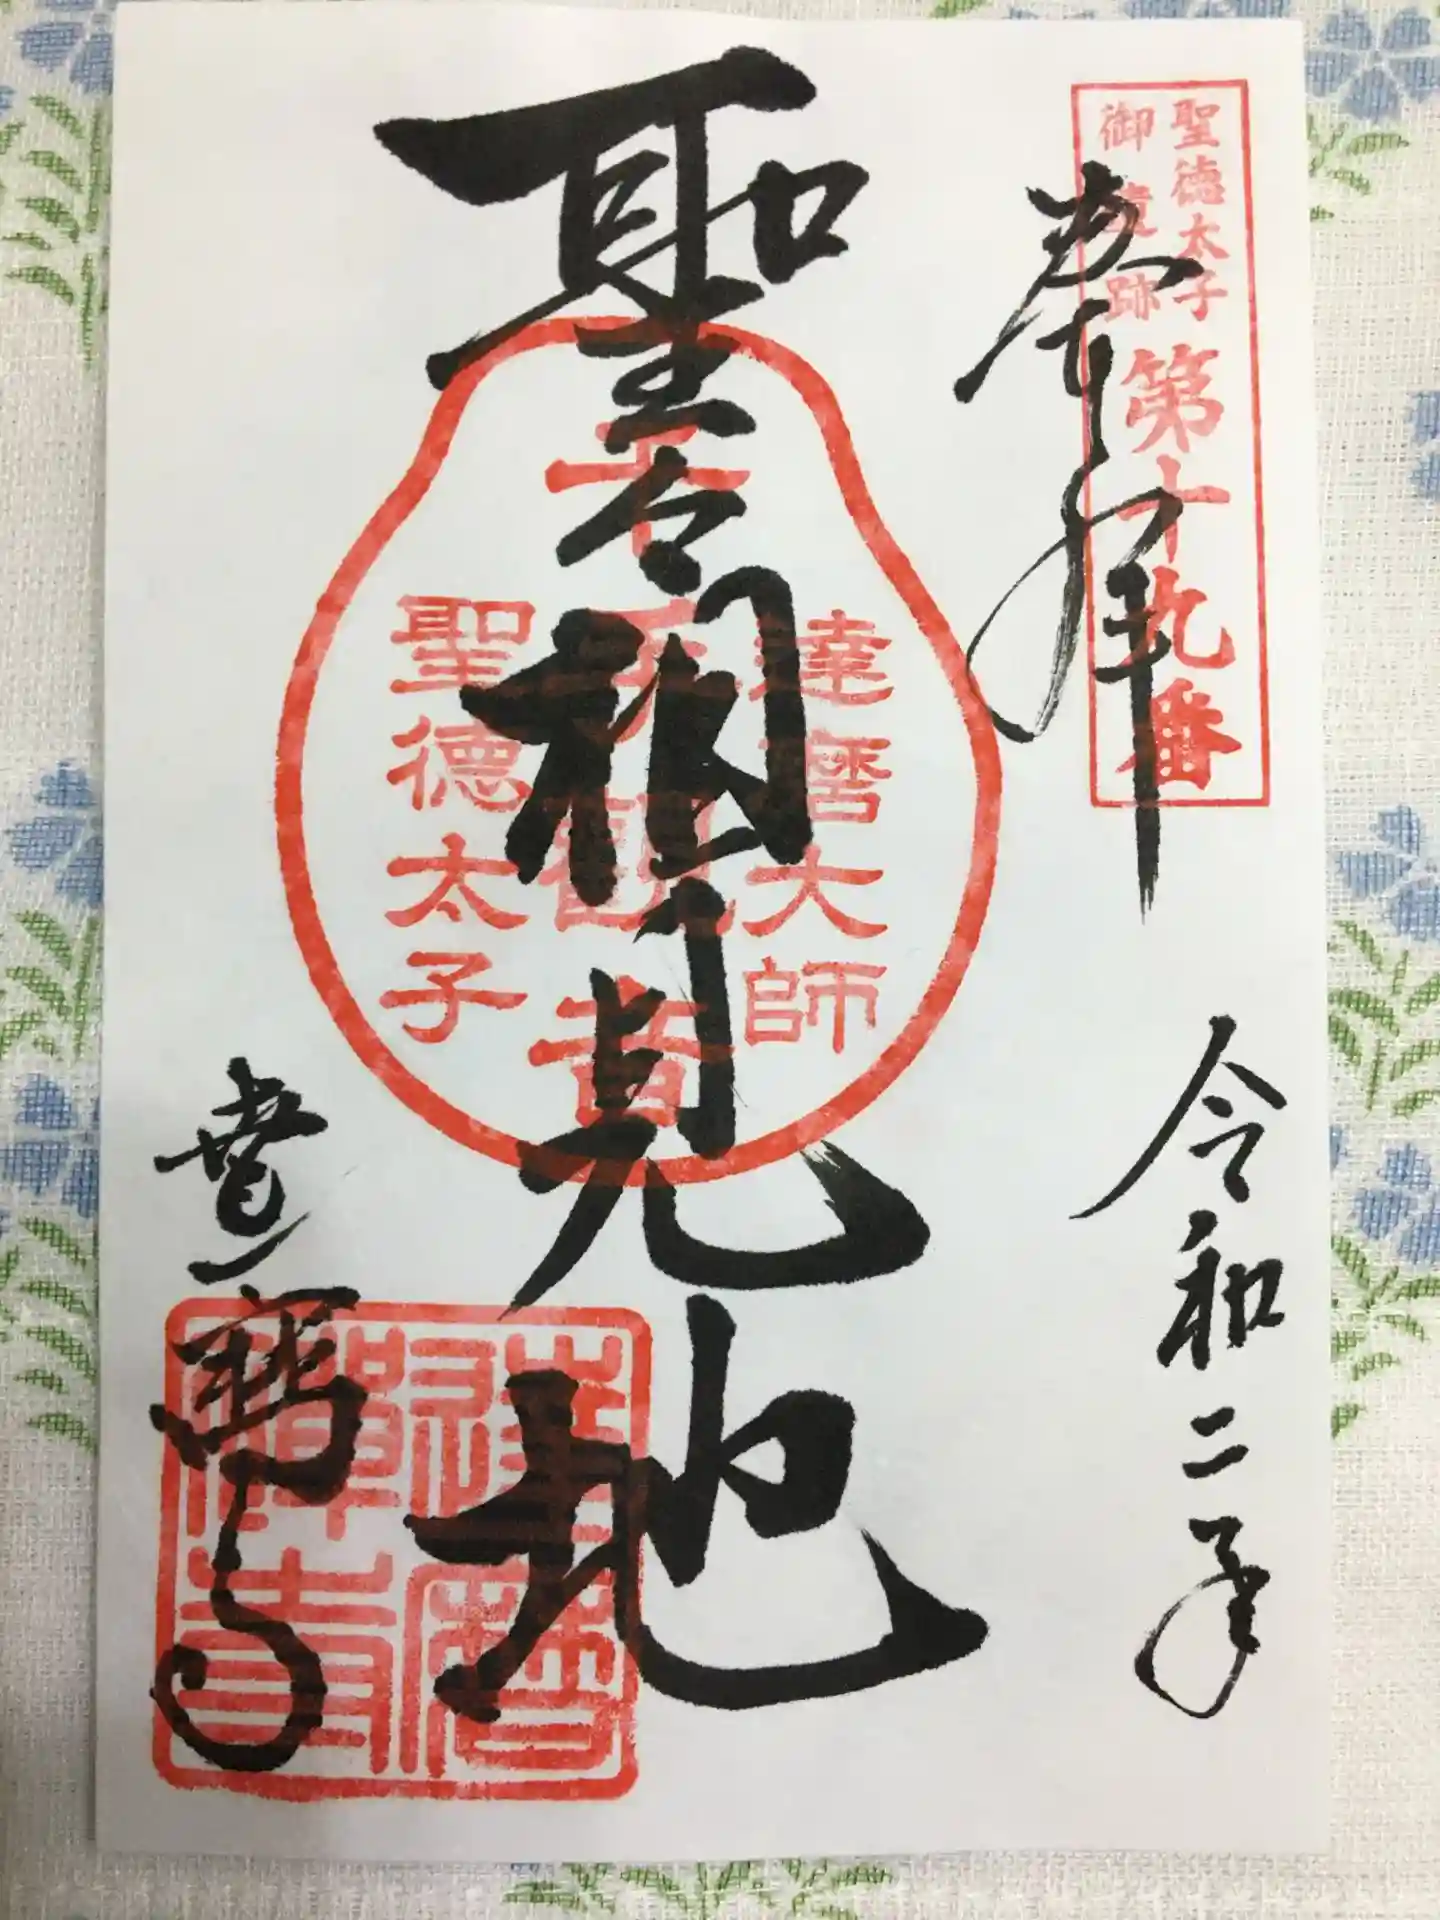 聖徳太子
御遺跡
第十九番
奉拝
令和二年
聖々相見地
達磨大師
千手観音
聖徳太子
達磨寺
達磨禅寺